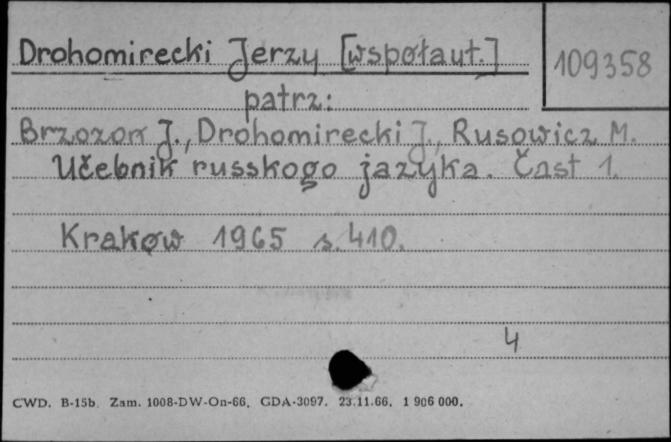 Drohomirecki Jerzy [wspołaut.]
109358
patrz:
Brzozoń J., Drohomirecki J., Rusowicz M.
Učebnik russkogo jazyka. Čast 1.
Kraków 1965 s. 410.
4
CWD. B-15b. Zam. 1008-DW-On-66. GDA-3097. 23.11.66. 1 906 000.